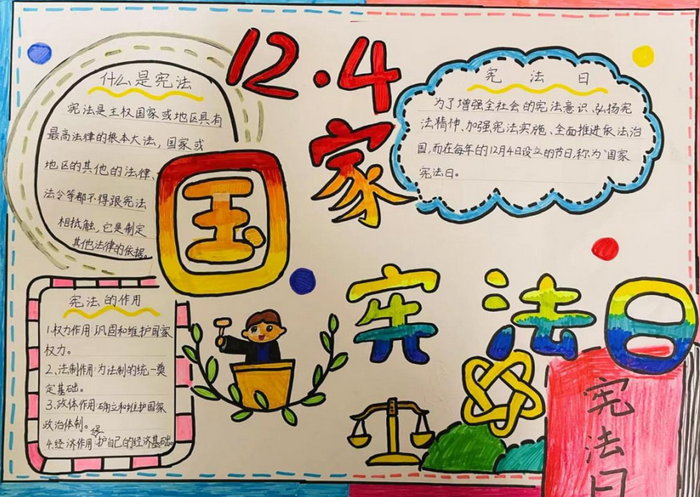 12.4
国家
宪法日
什么是宪法
宪法是主权国家或地区具有
最高法律的根本大法，国家或
地区的其他的法律、
法令等都不得跟宪法
相抵触，它是制定
其他法律的依据。
宪法日
为了增强全社会的宪法意识、弘扬宪
法精神、加强宪法实施、全面推进依法治
国，而在每年的12月4日设立的节日，称为"国家
宪法日。
宪法的作用
1.权力作用：巩固和维护国家
权力。
2.法制作用：为法制的统一奠
定基础。
3.政体作用：确立和维护国家
政治体制。
4.经济作用：维护自己的经济基础
宪法日